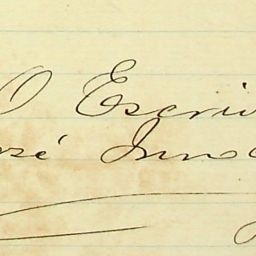 O Escriv
osé Inno